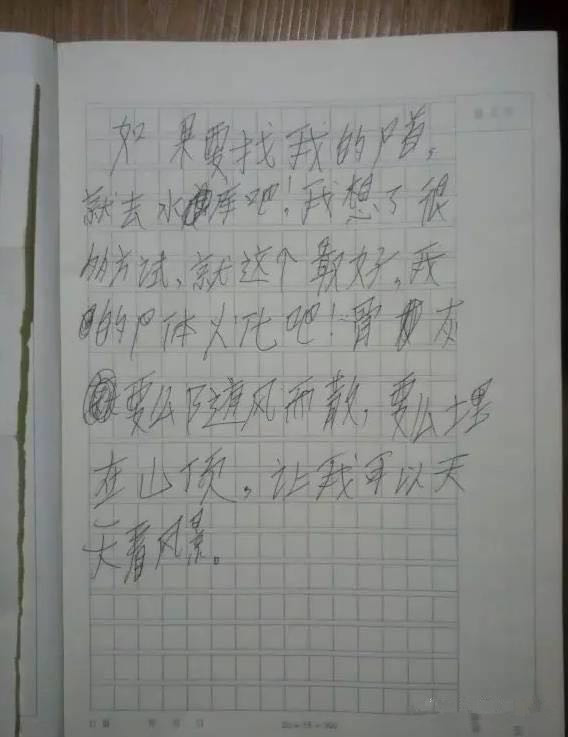 如果要找我的尸首,
就去水库吧!我想了很
多方试,就这个最好,我
的尸体火化吧!骨灰
要么随风而散,要么埋
在山顶,让我可以天
天看风景。